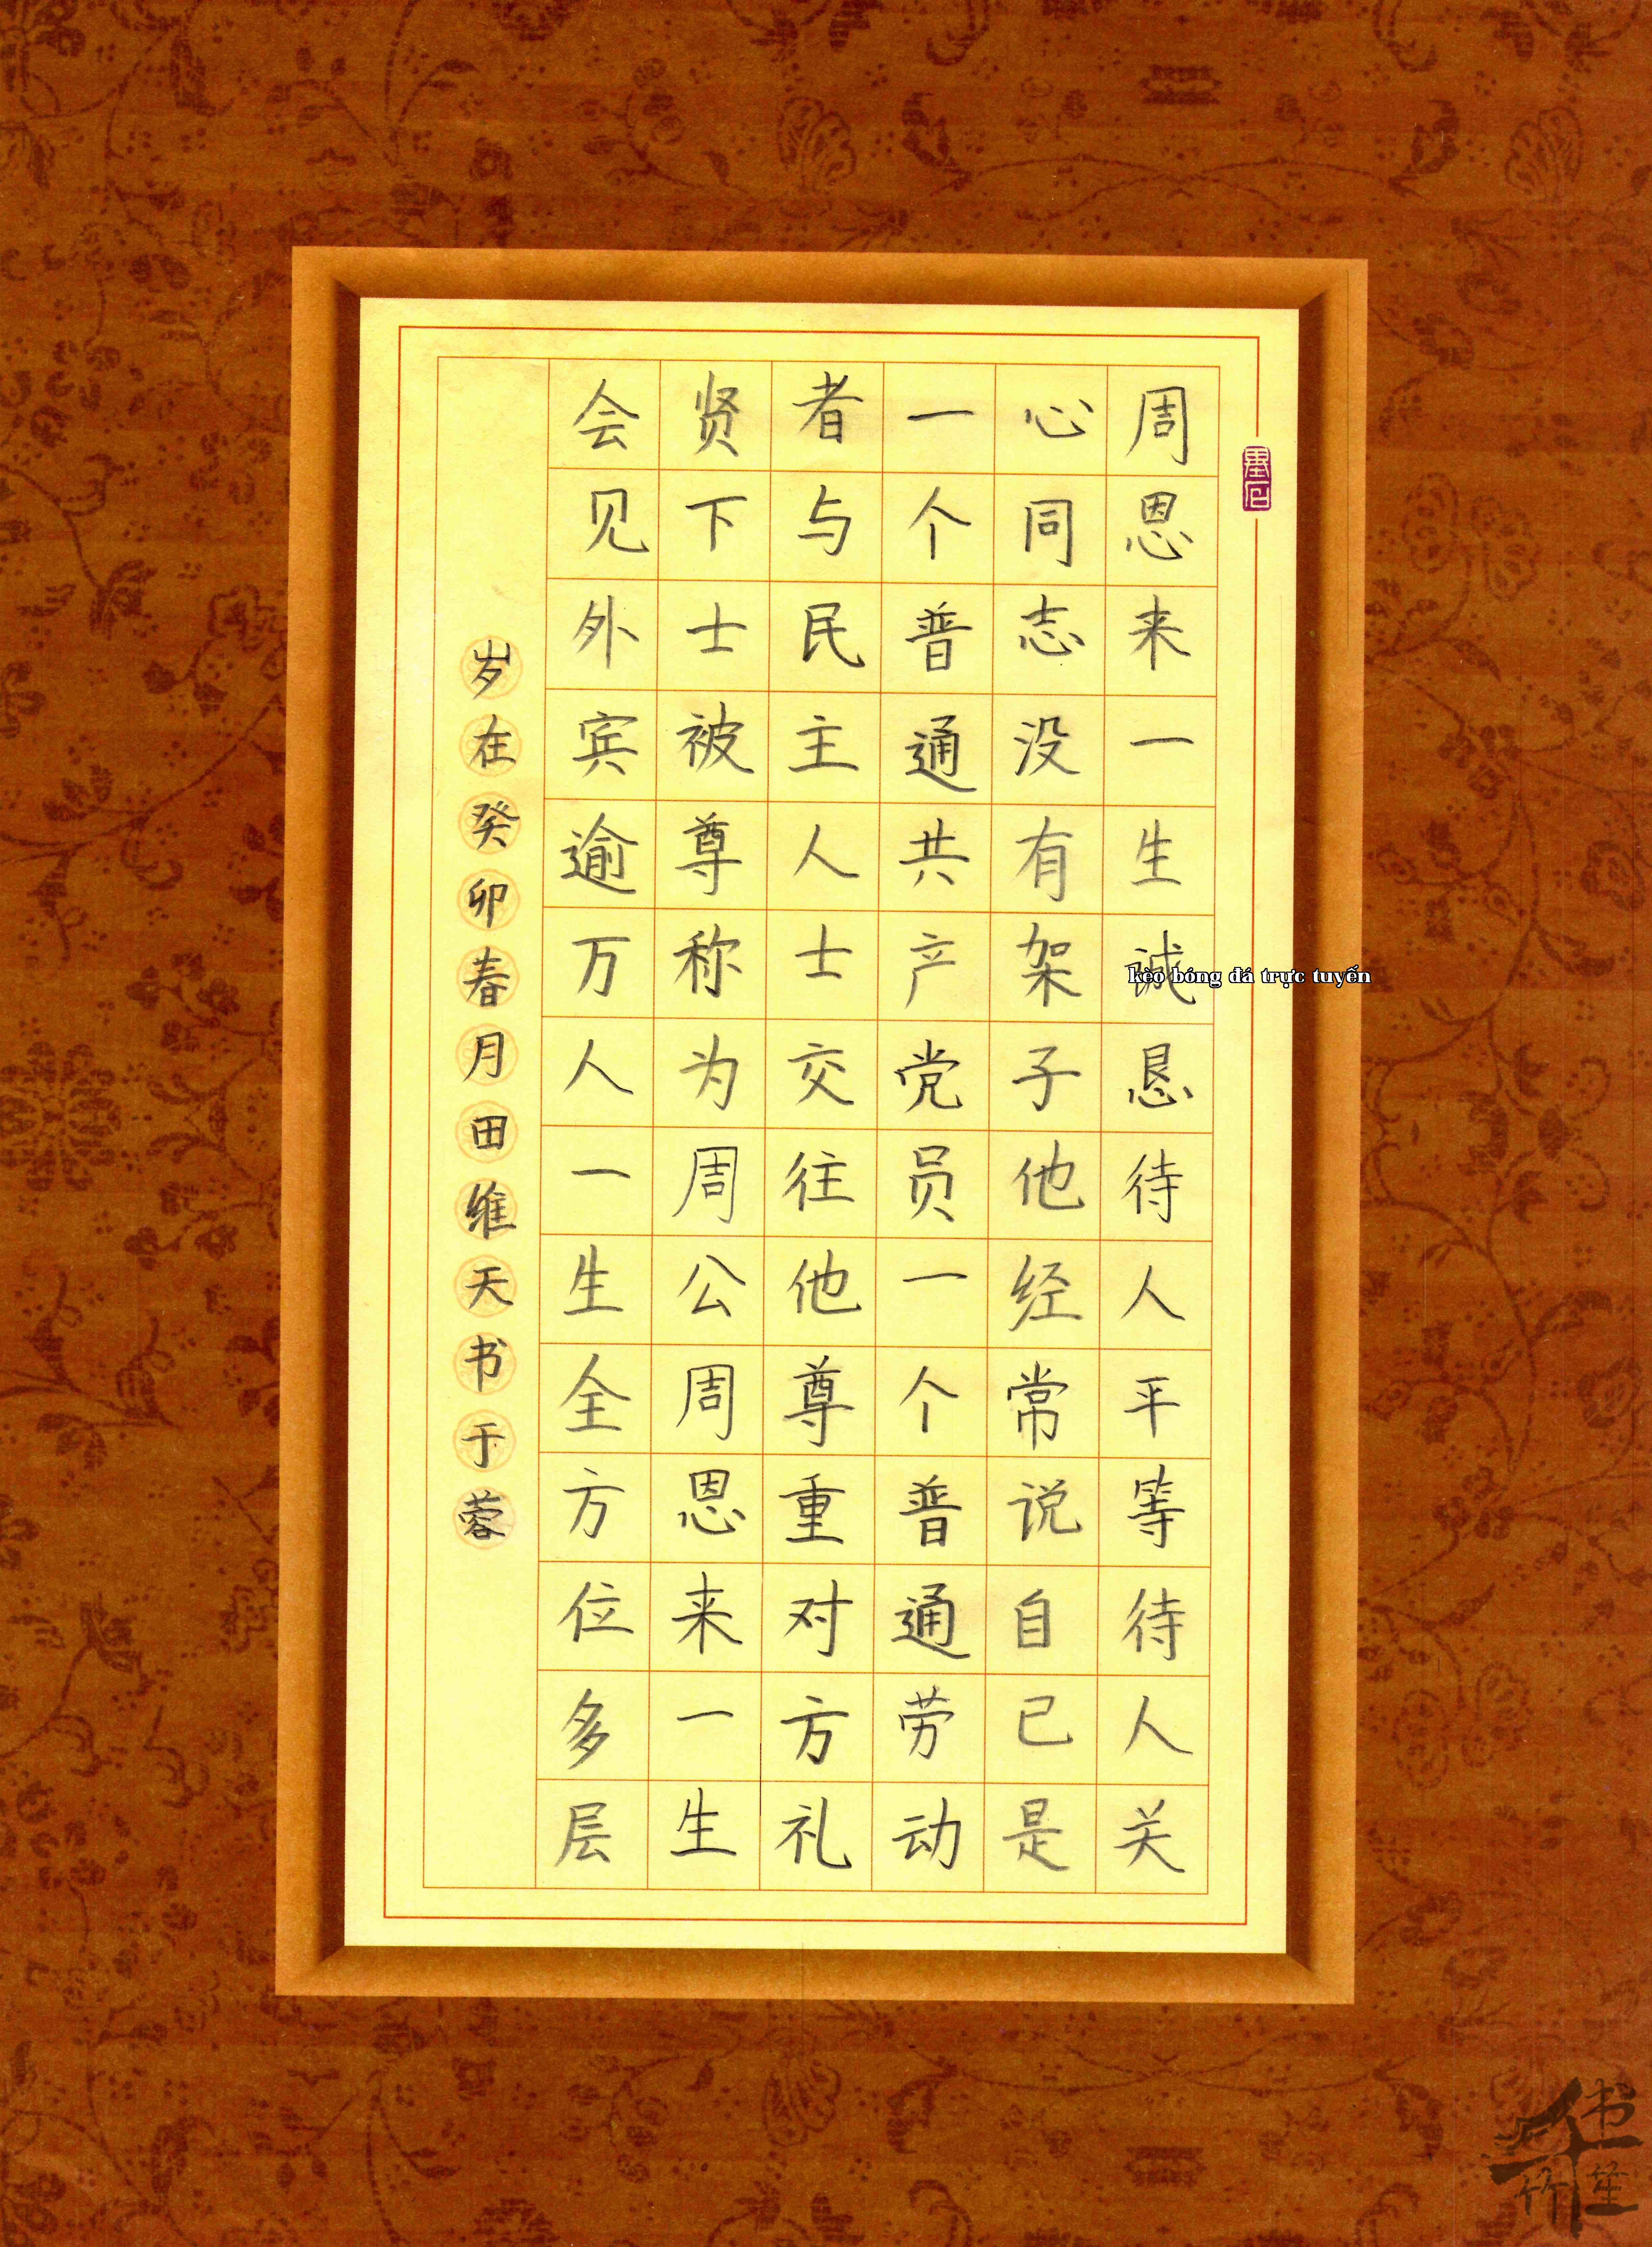 周恩来一生诚恳待人平等待人关
心同志没有架子他经常说自己是
一个普通共产党员一个普通劳动
者与民主人士交往他尊重对方礼
贤下士被尊称为周公周恩来一生
会见外宾逾万人一生全方位多层
岁在癸卯春月田维天书于蓉
kèo bóng đá trực tuyến